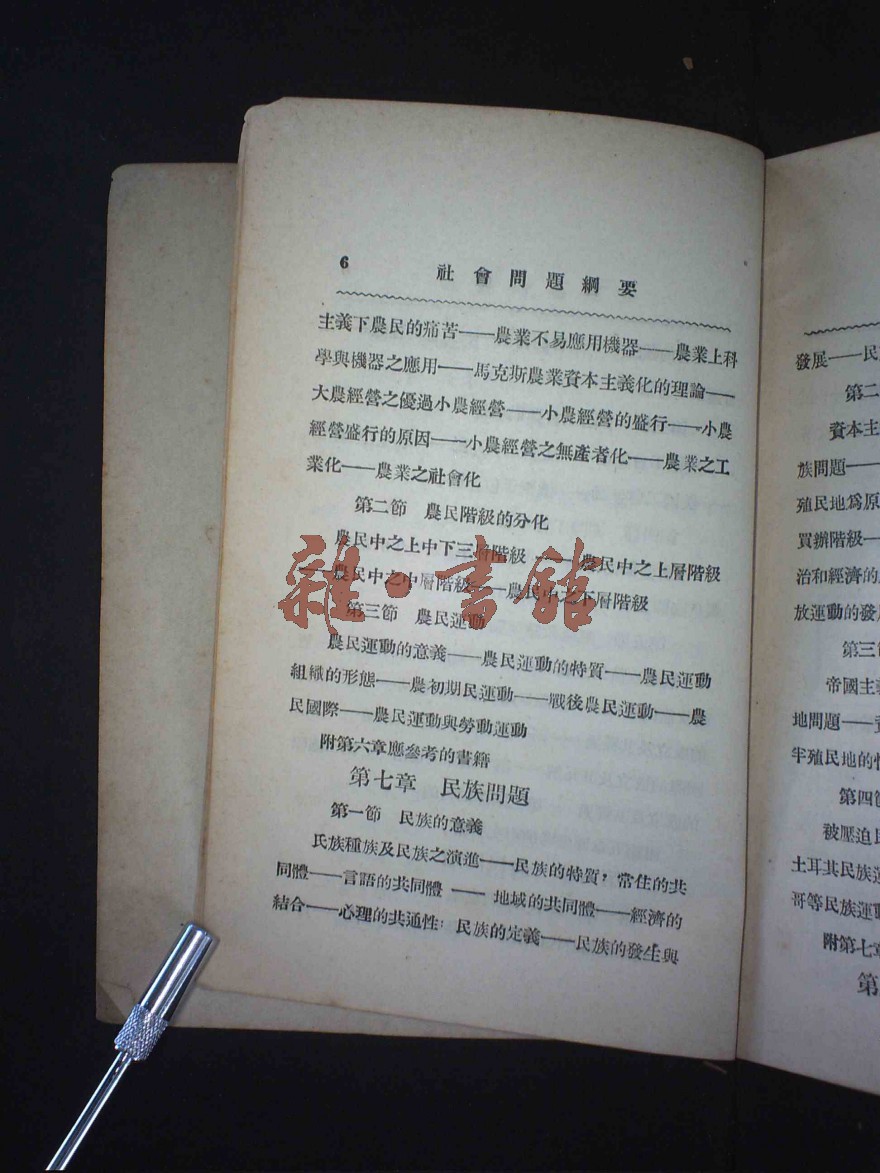 6
社會問題綱要
主義下農民的痛苦——農業不易應用機器——農業上科
學與機器之應用——馬克斯農業資本主義化的理論——
大農經營之優過小農經營——小農經營的盛行——小農
經營盛行的原因——小農經營之無產者化——農業之工
業化——農業之社會化
第二節 農民階級的分化
農民中之上中下三層階級——農民中之上層階級
——農民中之中層階級——農民中之下層階級
第三節 農民運動
農民運動的意義——農民運動的特質——農民運動
組織的形態——農初期民運動——戰後農民運動——農
民國際——農民運動與勞動運動
附第六章應參考的書籍
第七章 民族問題
第一節 民族的意義
氏族種族及民族之演進——民族的特質，常住的共
同體——言語的共同體——地域的共同體——經濟的
結合——心理的共通性：民族的定義——民族的發生與
雜·書館
發展——民
第二
資本主
族問題——
殖民地爲原
買辦階級—
治和經濟的
放運動的發
第三節
帝國主義
地問題——
半殖民地的
第四節
被壓迫民
土耳其民族運
哥等民族運動
附第七章
第